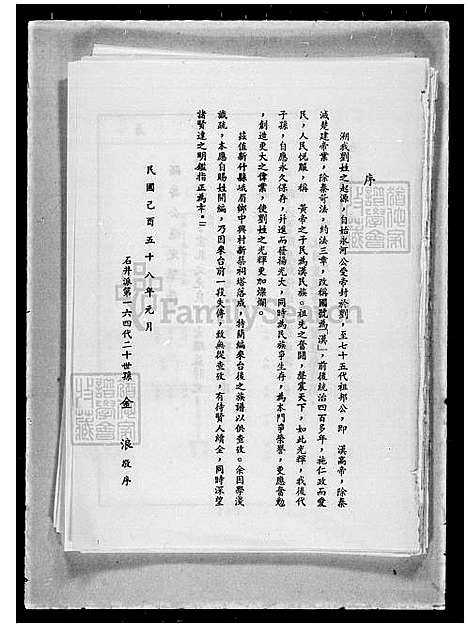 序
溯我劉姓之起源，自始永河公受帝封於劉，至七十五代祖邦公，即　漢高帝，除秦
滅楚建帝業，除秦苛法，約法三章，改稱國號為「漢」，前後統治四百多年，施仁政而愛
民，人民悅服，稱　黃帝之子民為漢民族。祖先之奮鬪，聲震天下，如此光輝，我後代
子孫，自應永久保存，并進而發揚光大，同時為民族爭生存，為本門爭榮譽，更應奮勉
，創造更大之偉業，使劉姓之光輝更加燦爛。
茲值新竹縣峨眉鄉中興村新築祠塔落成，特簡編來台後之族譜以供查攷。余因學淺
識疏，本應自賜姓開編，乃因來台前一段失傳，致無從查攷，有待賢人續全，同時深望
諸賢達之明鑑指正為幸。
民國己酉五十八年元月
石井派第一六四代二十世孫　金　浪　敬序
FamilySearch